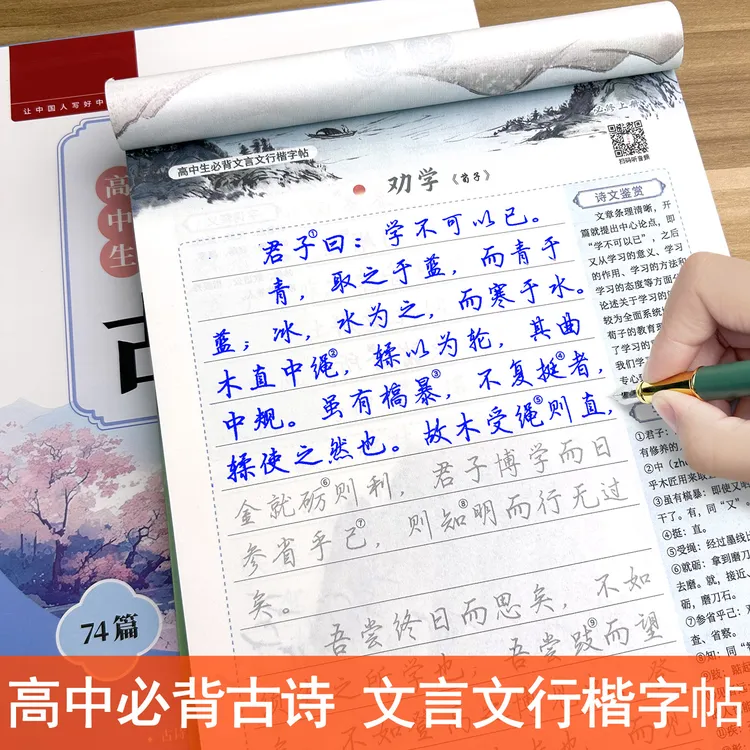 让中国人写好中
高
中
生
74篇
必修上册
扫码听音频
高中生必背文言文行楷字帖
劝学《荀子》
君子①曰：学不可以已。
青，取之于蓝，而青于
蓝；冰，水为之，而寒于水。
木直中绳②，𫐓以为轮，其曲
中规。虽有槁暴③，不复挺④者，
𫐓使之然也。故木受绳⑤则直，
金就砺⑥则利，君子博学而日
参省乎己⑦，则知⑧明而行无过
矣。
吾尝终日而思矣，不如
之所学也，吾尝跂⑨而望
诗文鉴赏
文章条理清晰，开
篇就提出中心论点，即
“学不可以已”，之后
又从学习的意义、学习
的作用、学习的方法和
学习的态度等方面
论述关于学习的
较为全面系统
荀子的教育
了学习的
我们学
专心
①君子：
有修养的
②中（zh
乎木匠用来取
③虽有槁暴：即使又
干了。有，同“又”
④挺：直。
⑤受绳：经过墨线比
⑥就砺：拿到磨刀
去磨。就，接近。
砺，磨刀石。
⑦参省乎己：
查、省察。
⑧知：同“
高中必背古诗 文言文行楷字帖